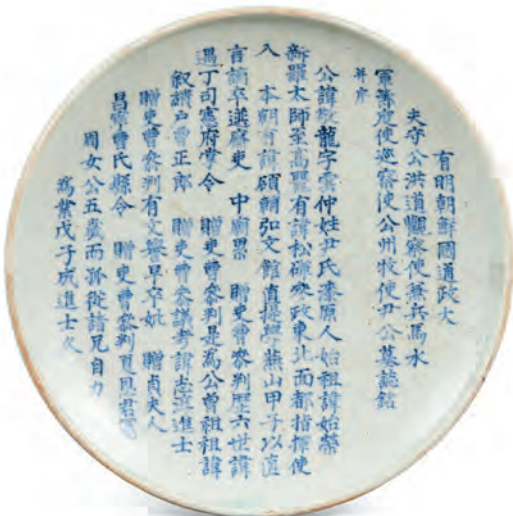 有明朝鮮國通政大
夫守公洪道觀察使兼兵馬水
軍節度使巡察使公州牧使尹公墓誌銘
并序
公諱龍字雲仲姓尹氏漆原人始祖諱始榮
新羅太師至高麗有諱松參政東北面都指揮使
入 本朝有諱碩輔弘文館直提學燕山甲子以直
言謫卒選廉吏 中廟累 贈吏曹參判歷六世諱
遇丁司憲府掌令 贈吏曹參判是為公曾祖祖諱
叙績戶曹正郎 贈吏曹參議考諱志進士
贈吏曹參判有文譽早卒妣 贈貞夫人
昌寧曺氏縣令 贈吏曹參判夏君
周女公五歲而孤從諸兄自力
為業戊子成進士久